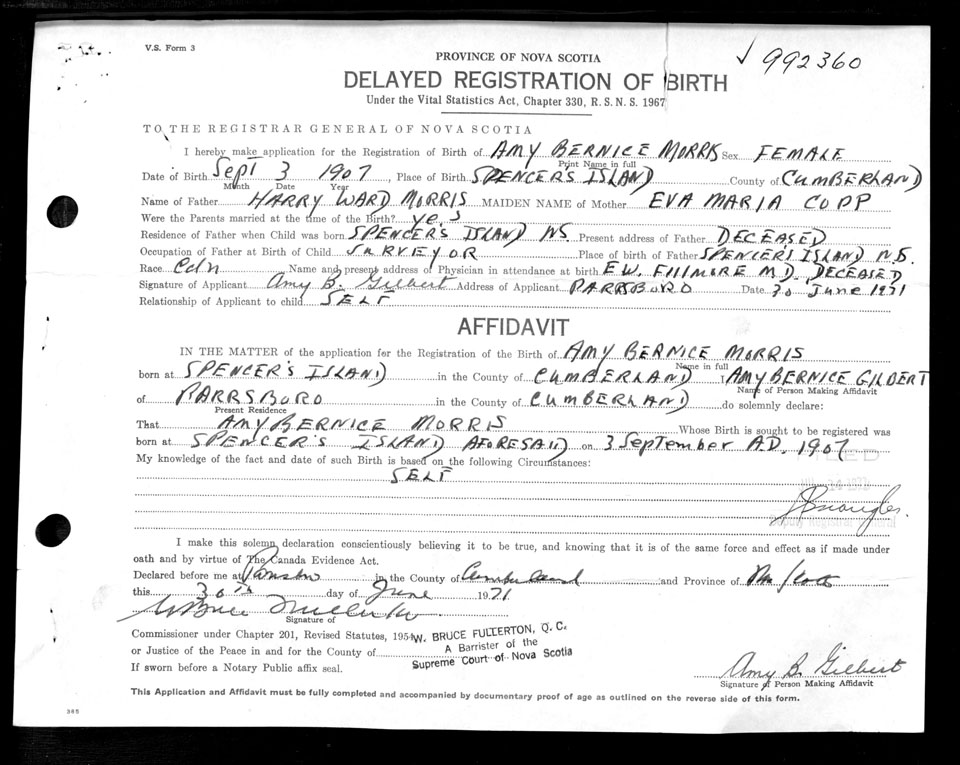 V.S. Form 3
PROVINCE OF NOVA SCOTIA
✓ 992360
DELAYED REGISTRATION OF BIRTH
Under the Vital Statistics Act, Chapter 330, R.S.N.S. 1967
TO THE REGISTRAR GENERAL OF NOVA SCOTIA
I hereby make application for the Registration of Birth of AMY BERNICE MORRIS Sex FEMALE
Print Name in full
Date of Birth Sept 3 1907, Place of Birth SPENCER'S ISLAND County of CUMBERLAND
Month Date Year
Name of Father HARRY WARD MORRIS MAIDEN NAME of Mother EVA MARIA COPP
Were the Parents married at the time of the Birth? yes
Residence of Father when Child was born SPENCER'S ISLAND NS. Present address of Father DECEASED
Occupation of Father at Birth of Child SURVEYOR Place of birth of Father SPENCER'S ISLAND N.S.
Race Cdn Name and present address of Physician in attendance at birth E.W. FILLMORE M.D. DECEASED
Signature of Applicant Amy B. Gilbert Address of Applicant PARRSBORO Date 30 June 1971
Relationship of Applicant to child SELF
AFFIDAVIT
IN THE MATTER of the application for the Registration of the Birth of AMY BERNICE MORRIS
Name in full
born at SPENCER'S ISLAND in the County of CUMBERLAND AMY BERNICE GILBERT
Name of Person Making Affidavit
of PARRSBORO in the County of CUMBERLAND do solemnly declare:
Present Residence
That AMY BERNICE MORRIS Whose Birth is sought to be registered was
born at SPENCER'S ISLAND AFORESAID on 3 September A.D. 1907
My knowledge of the fact and date of such Birth is based on the following Circumstances:
SELF
I make this solemn declaration conscientiously believing it to be true, and knowing that it is of the same force and effect as if made under
oath and by virtue of The Canada Evidence Act.
Declared before me at Parrsboro in the County of Cumberland and Province of Nova Scotia
this 30th day of June 1971
W Bruce Fullerton
Signature of
Commissioner under Chapter 201, Revised Statutes, 1954
or Justice of the Peace in and for the County of
If sworn before a Notary Public affix seal.
W. BRUCE FULLERTON, Q.C.
A Barrister of the
Supreme Court of Nova Scotia
Amy B. Gilbert
Signature of Person Making Affidavit
This Application and Affidavit must be fully completed and accompanied by documentary proof of age as outlined on the reverse side of this form.